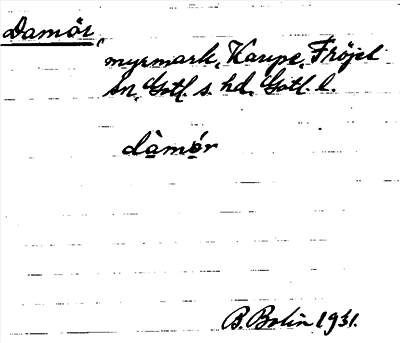 Damör,
myrmark, Kaupe, Fröjel
sn, Gotl. s. hd, Gotl. l.
dàmór
B. Bolin 1931.